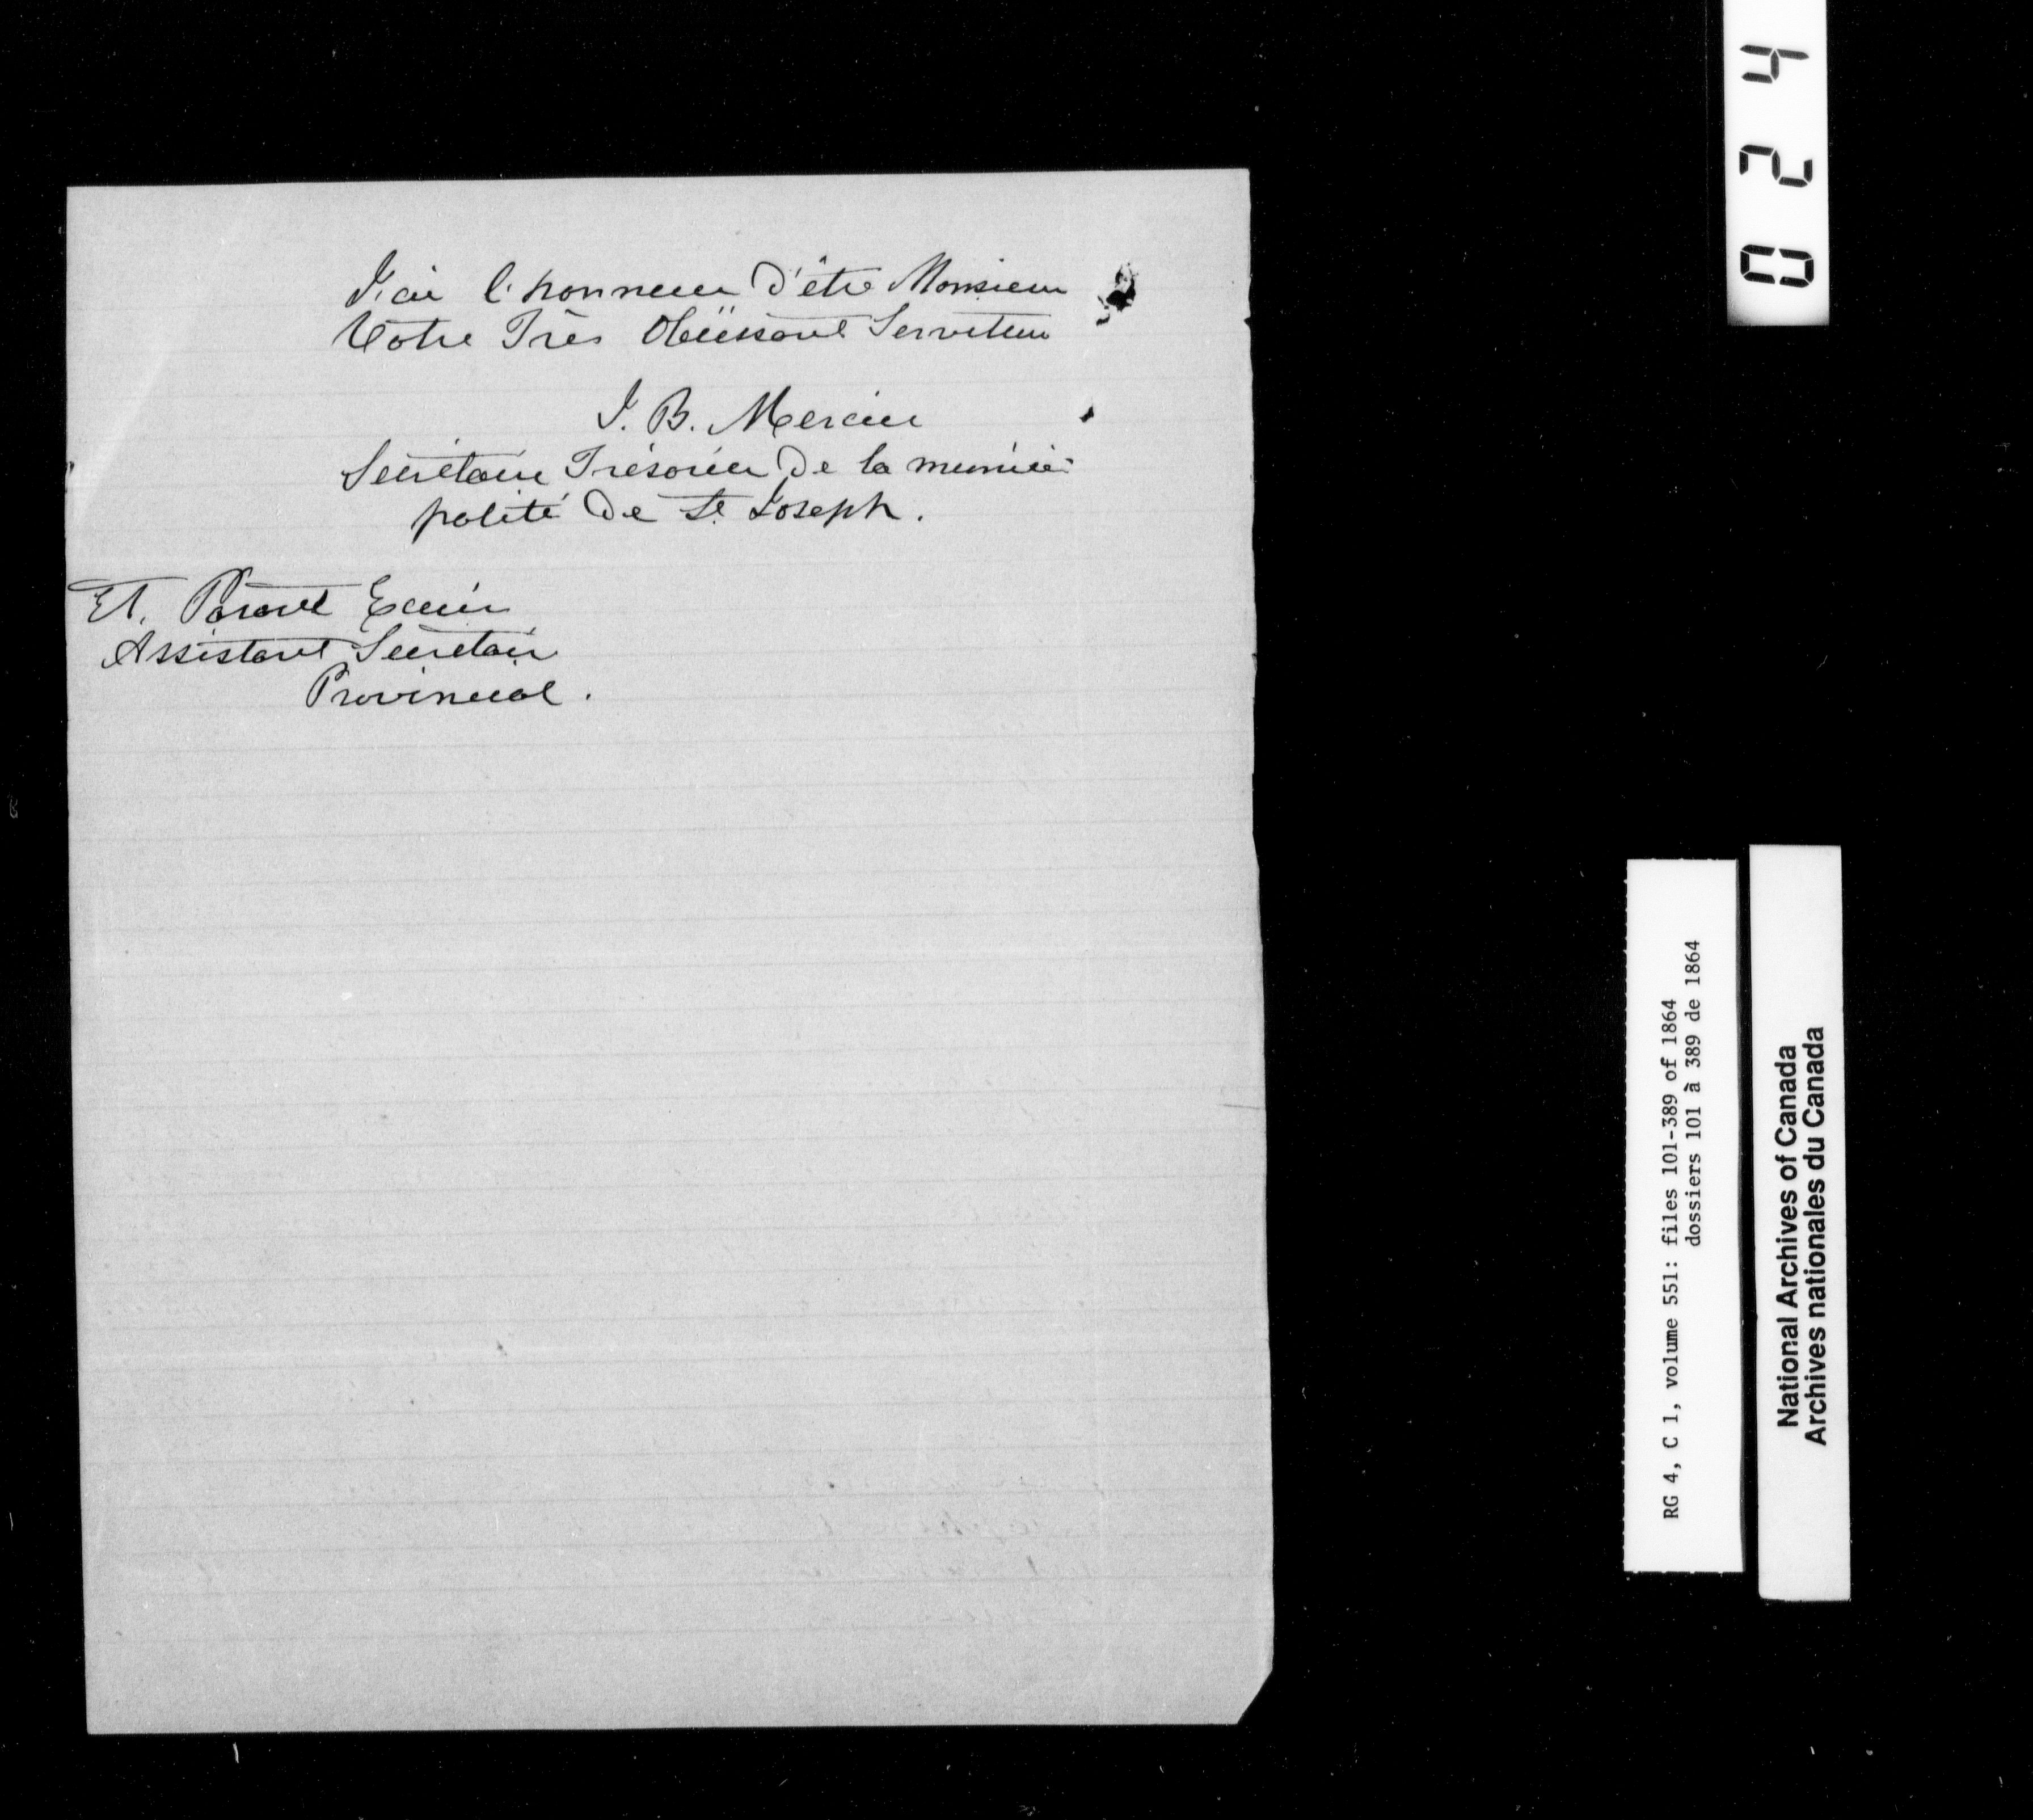 J'ai l'honneur d'être Monsieur
Votre Très Obéissant Serviteur
J. B. Mercier
Secrétaire Trésorier de la munici-
palité de St Joseph.
Et. Parent Ecuier
Assistant Secretaire
Provincial.
024
RG 4, C 1, volume 551: files 101-389 of 1864
dossiers 101 à 389 de 1864
National Archives of Canada
Archives nationales du Canada